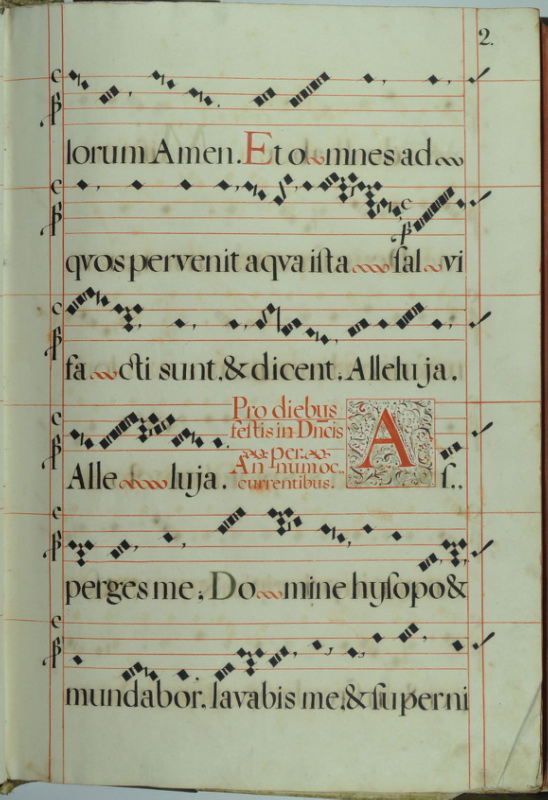 2.
lorum Amen. Et omnes ad
qvos pervenit aqva iſta ſalvi
facti sunt, & dicent, Alleluja.
Alleluja.
Pro diebus
feſtis in Dn̄cis
per
Annum oc-
currentibus.
Aſ..
perges me, Domine hyſopo &
mundabor, lavabis me, & ſuperni